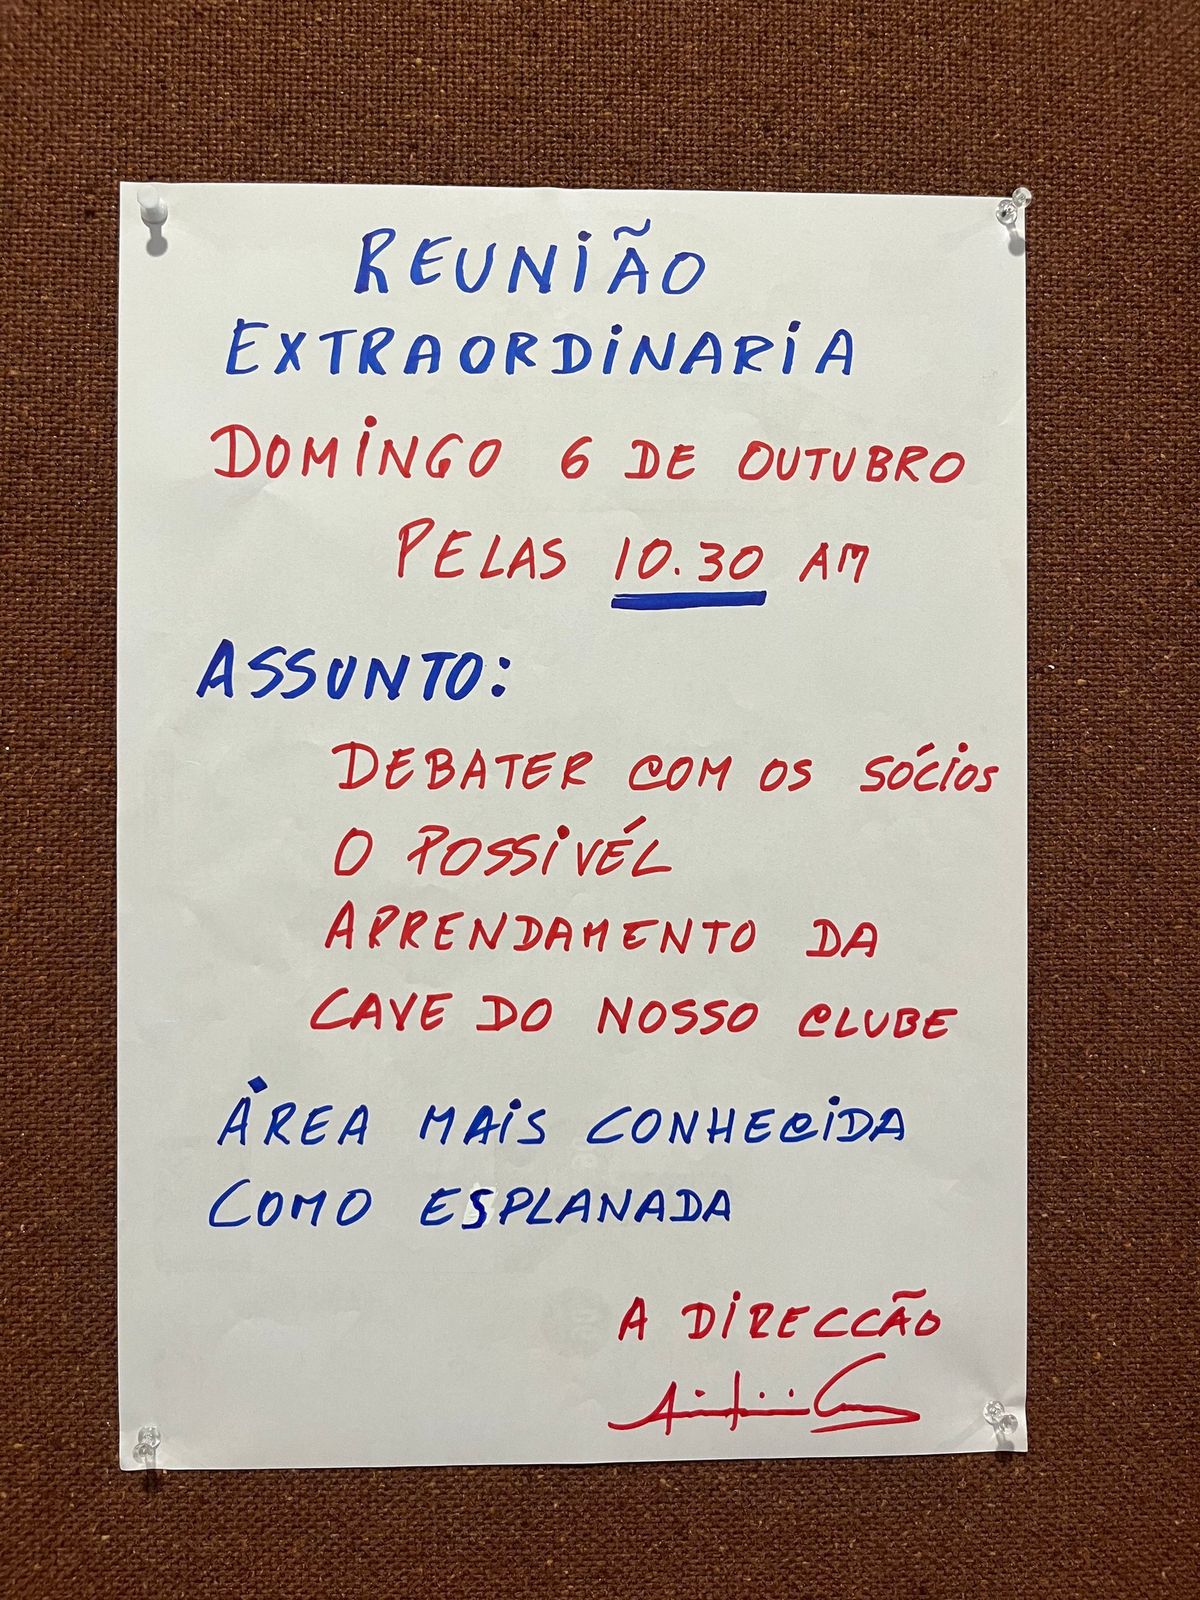 REUNIÃO
EXTRAORDINARIA
DOMINGO 6 DE OUTUBRO
PELAS 10.30 AM
ASSUNTO:
DEBATER COM OS SÓCIOS
O POSSIVÉL
ARRENDAMENTO DA
CAVE DO NOSSO CLUBE
ÁREA MAIS CONHECIDA
COMO ESPLANADA
A DIRECCÃO